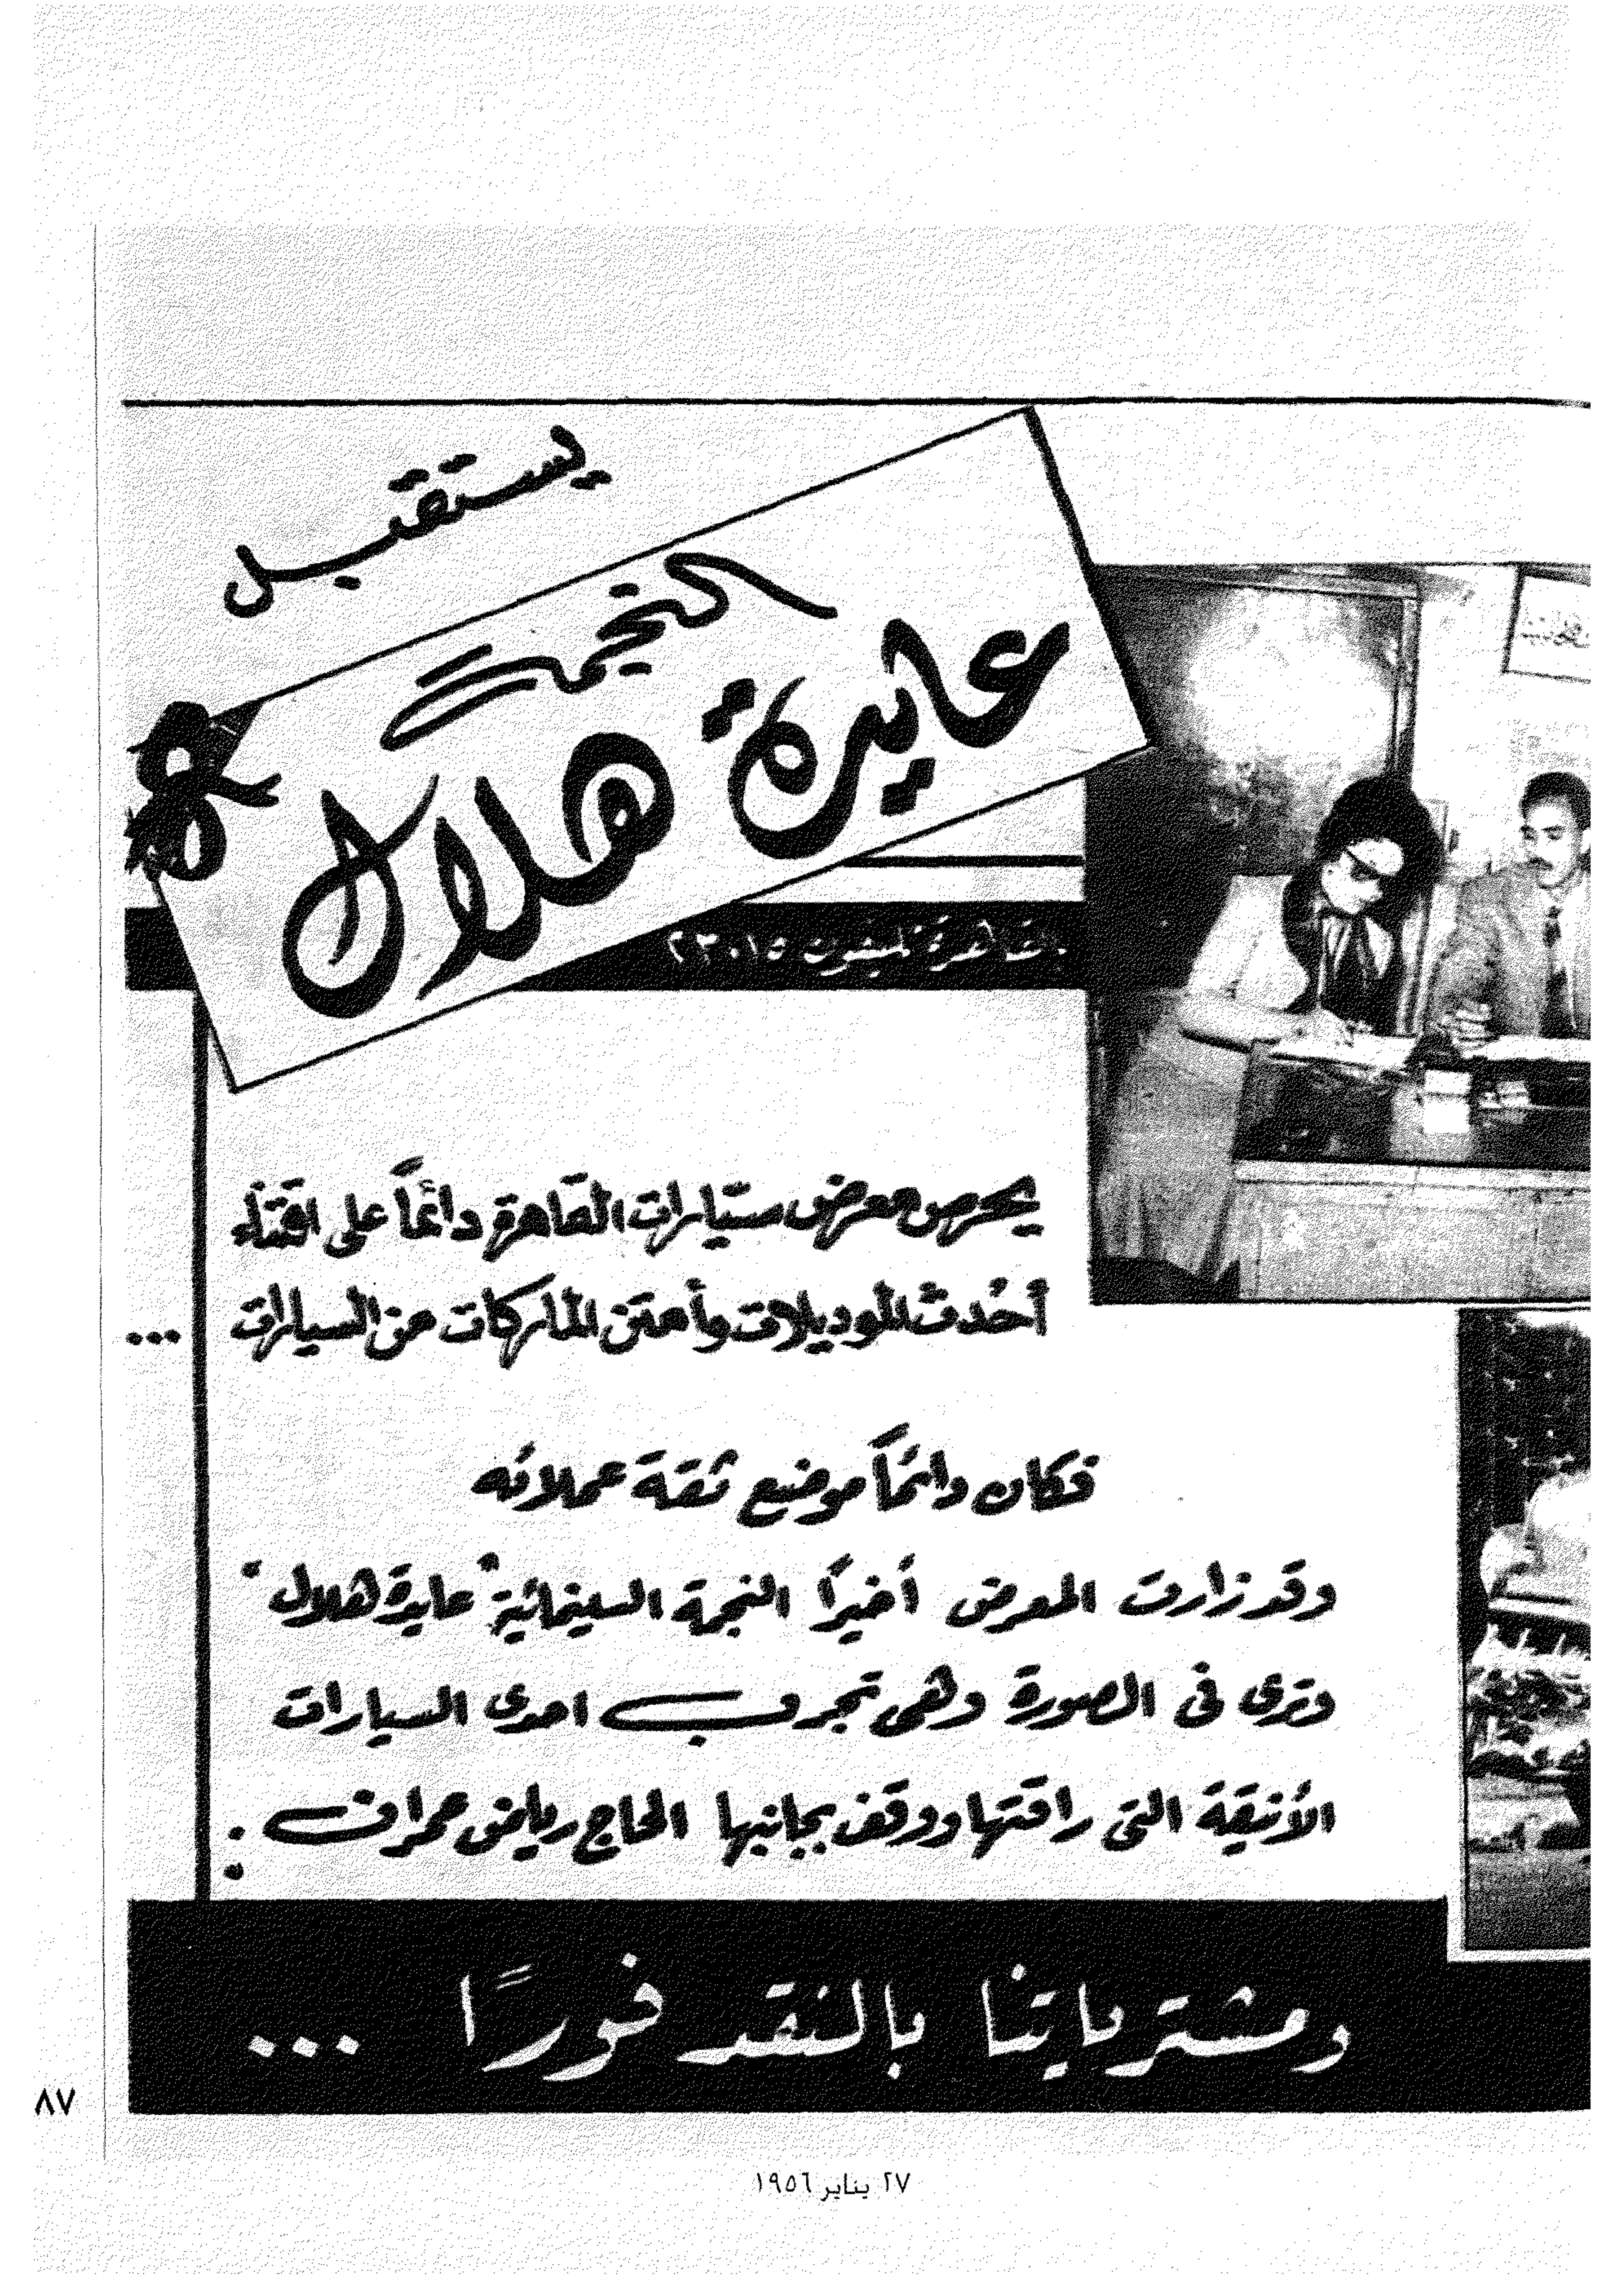 يستقبل
النجمة
عايدة هلال
بالقاهرة تليفون ٢٣٠١٥
يحرص معرض سيارات القاهرة دائماً على اقتناء
أحدث الموديلات وأمتن الماركات من السيارات ...
فكان دائماً موضع ثقة عملائه
وقد زارت المعرض أخيرًا النجمة السينمائية "عايدة هلال"
وترى فى الصورة وهى تجرب احدى السيارات
الأنيقة التى راقتها ووقف بجانبها الحاج رياض عمران .
ومشترياتنا بالنقد فورًا ...
٨٧
٢٧ يناير ١٩٥٦